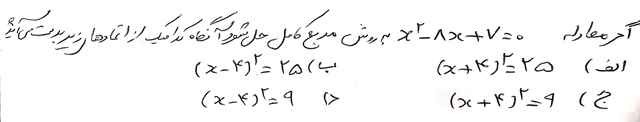 اگر معادله x² - ۸x + ۷ = ۰ به روش مربع کامل حل شود آنگاه کدامیک از اتحادهای زیر بدست می‌آید
الف) (x+۴)² = ۲۵ ب) (x-۴)² = ۲۵
ج) (x+۴)² = ۹ د) (x-۴)² = ۹